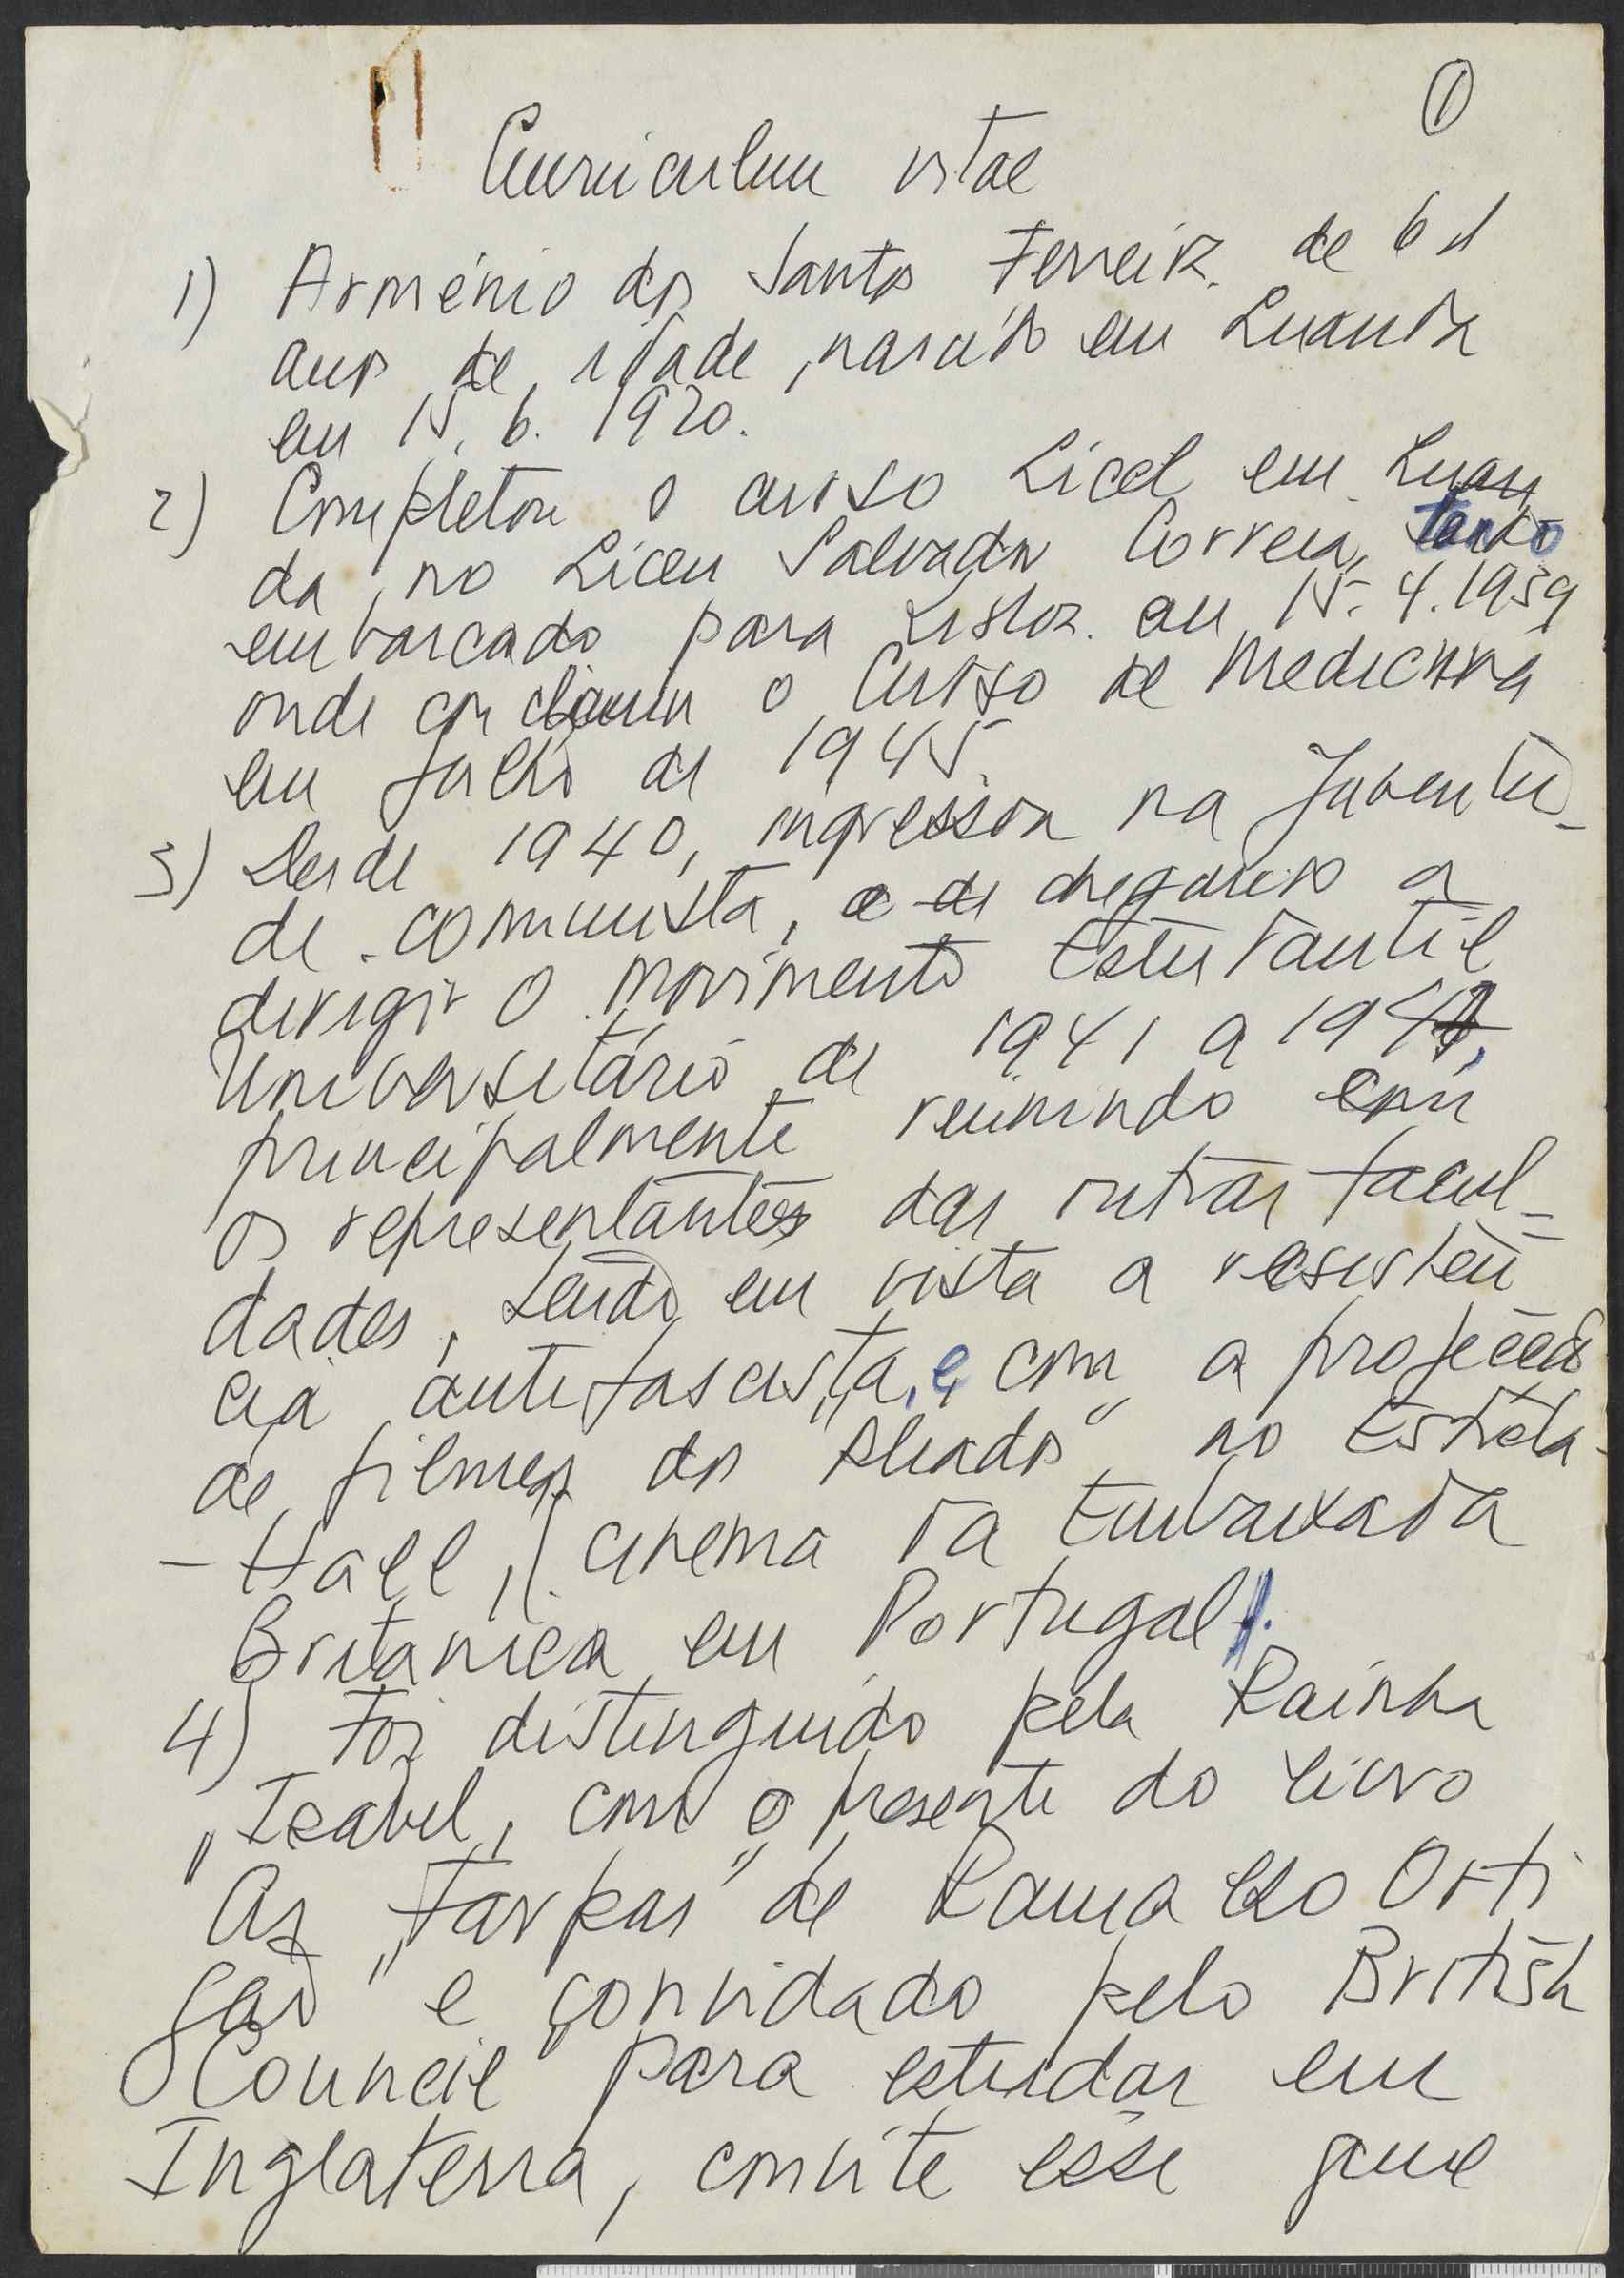 ①
Curriculum vitae
1) Arménio dos Santos Ferreira. de 61
anos de idade, nascido em Luanda
em 15. 6. 1920.
2) Completou o curso Liceal em Luan
da, no Liceu Salvador Correia, tendo
embarcado para Lisboa. em 15. 4. 1939
onde concluiu o Curso de Medicina
em Julho de 1945.
3) Desde 1940, ingressou na Juventu-
de comunista, chegando a
dirigir o movimento Estudantil
Universitário de 1941 a 194
principalmente reunindo com
os representantes das outras facul=
dades, tendo em vista a resistên
cia antifascista, e, com a projecção
de filmes dos "Aliados" no Estrela-
- Hall, (cinema da Embaixada
Britanica em Portugal).
4) Foi distinguido pela Rainha
Isabel, com o presente do livro
"As Farpas" de Ramalho Orti
gão e convidado pelo "British
Council" para estudar em
Inglaterra, convite esse que